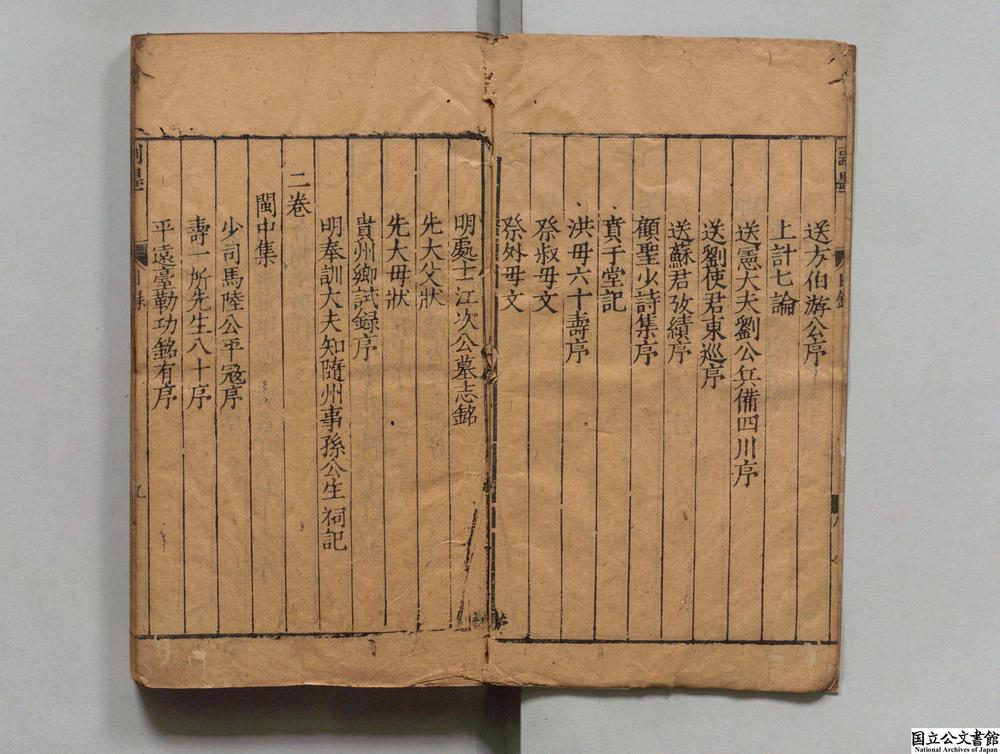 送方伯游公序
上計七論
送憲大夫劉公兵備四川序
送劉使君東巡序
送蘇君攷績序
顧聖少詩集序
蕡子堂記
洪母六十壽序
祭叔母文
祭外母文
明處士江次公墓志銘
先大父狀
先大母狀
貴州鄉試録序
明奉訓大夫知隨州事孫公生祠記
二卷
閩中集
少司馬陸公平寇序
壽一所先生八十序
平遠臺勒功銘有序
副墨
目録
九
国立公文書館
National Archives of Japan